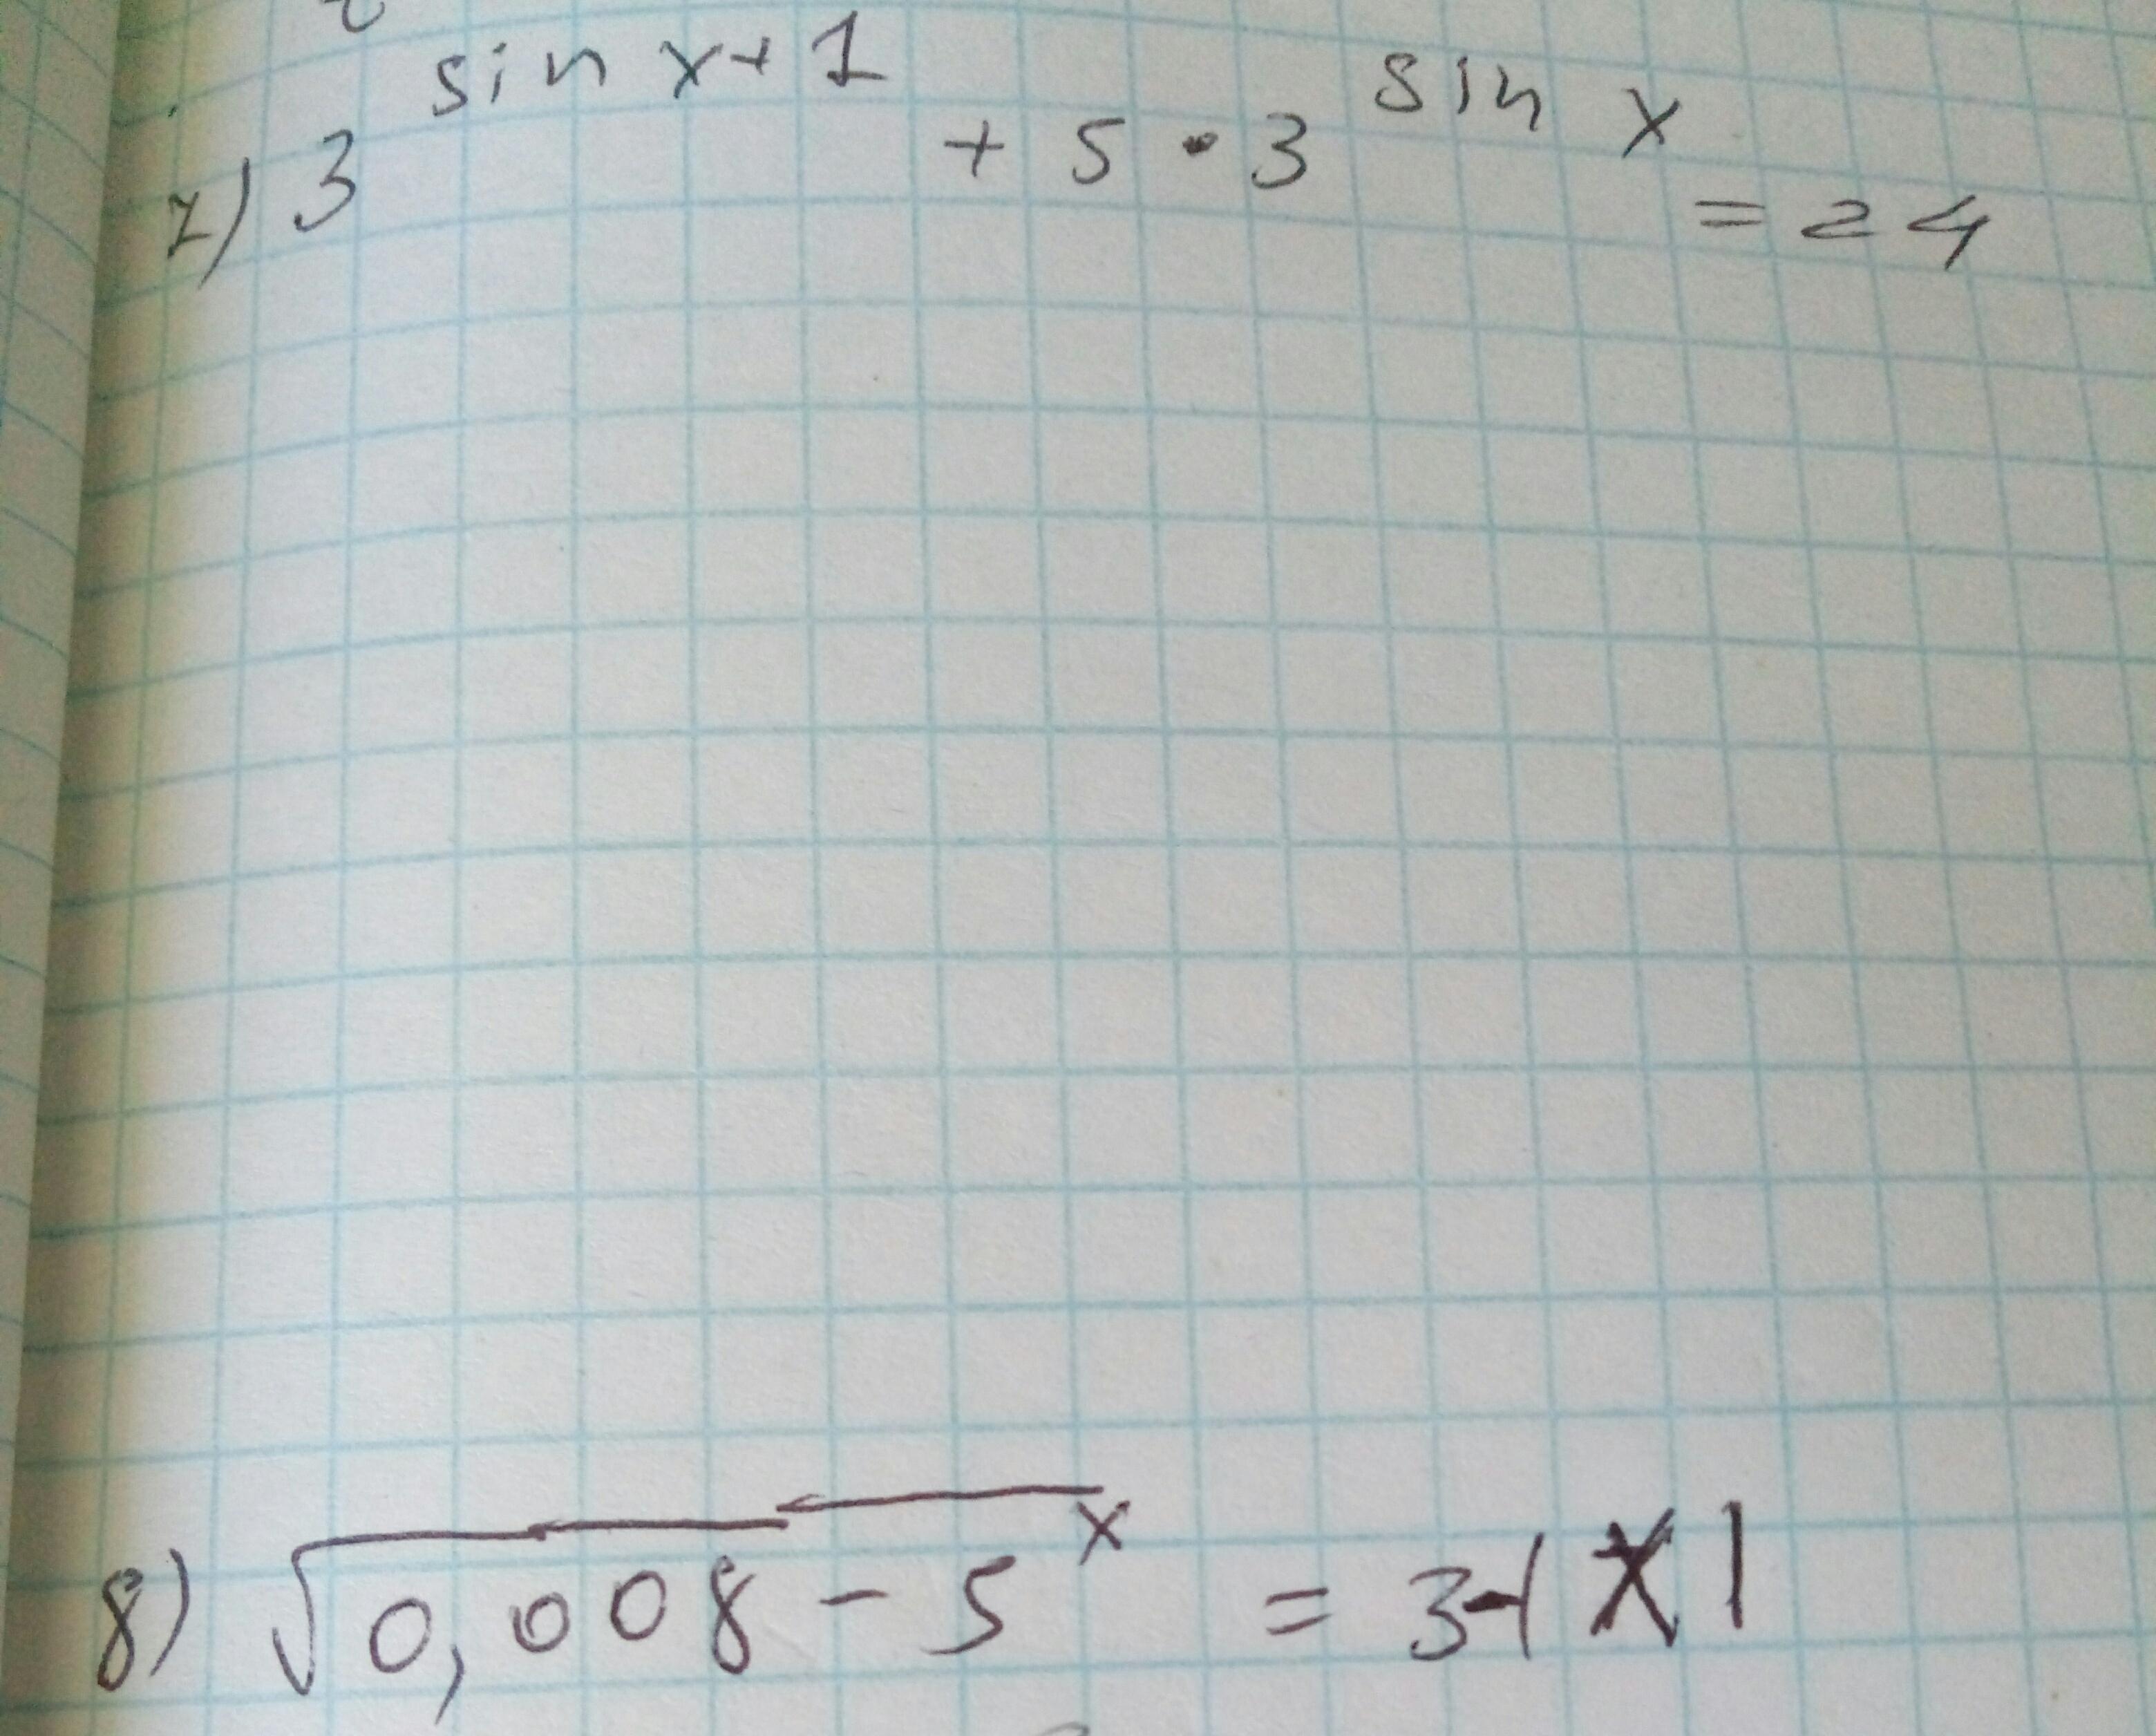 7) 3^{sin x+1} + 5 • 3^{sin x} = 24
8) √(0,008 - 5^x) = 3-|x|